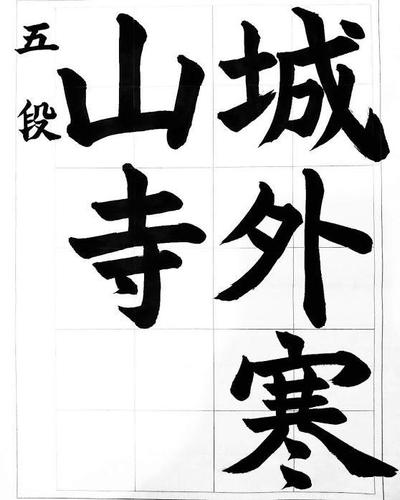 城外寒
山寺
五段